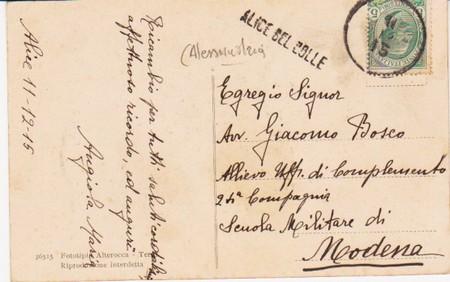 Alice 11-12-15
Ricambio per tutti saluti cordiali,
affettuoso ricordo, ed auguri
Angiola Maria
36515 Fototipia Alterocca - Terni
Riproduzione interdetta
(Alessandria)
ALICE BEL COLLE
Egregio Signor
Avv. Giacomo Bosco
Allievo Uff. di Complemento
2ª Compagnia
Scuola Militare di
Modena